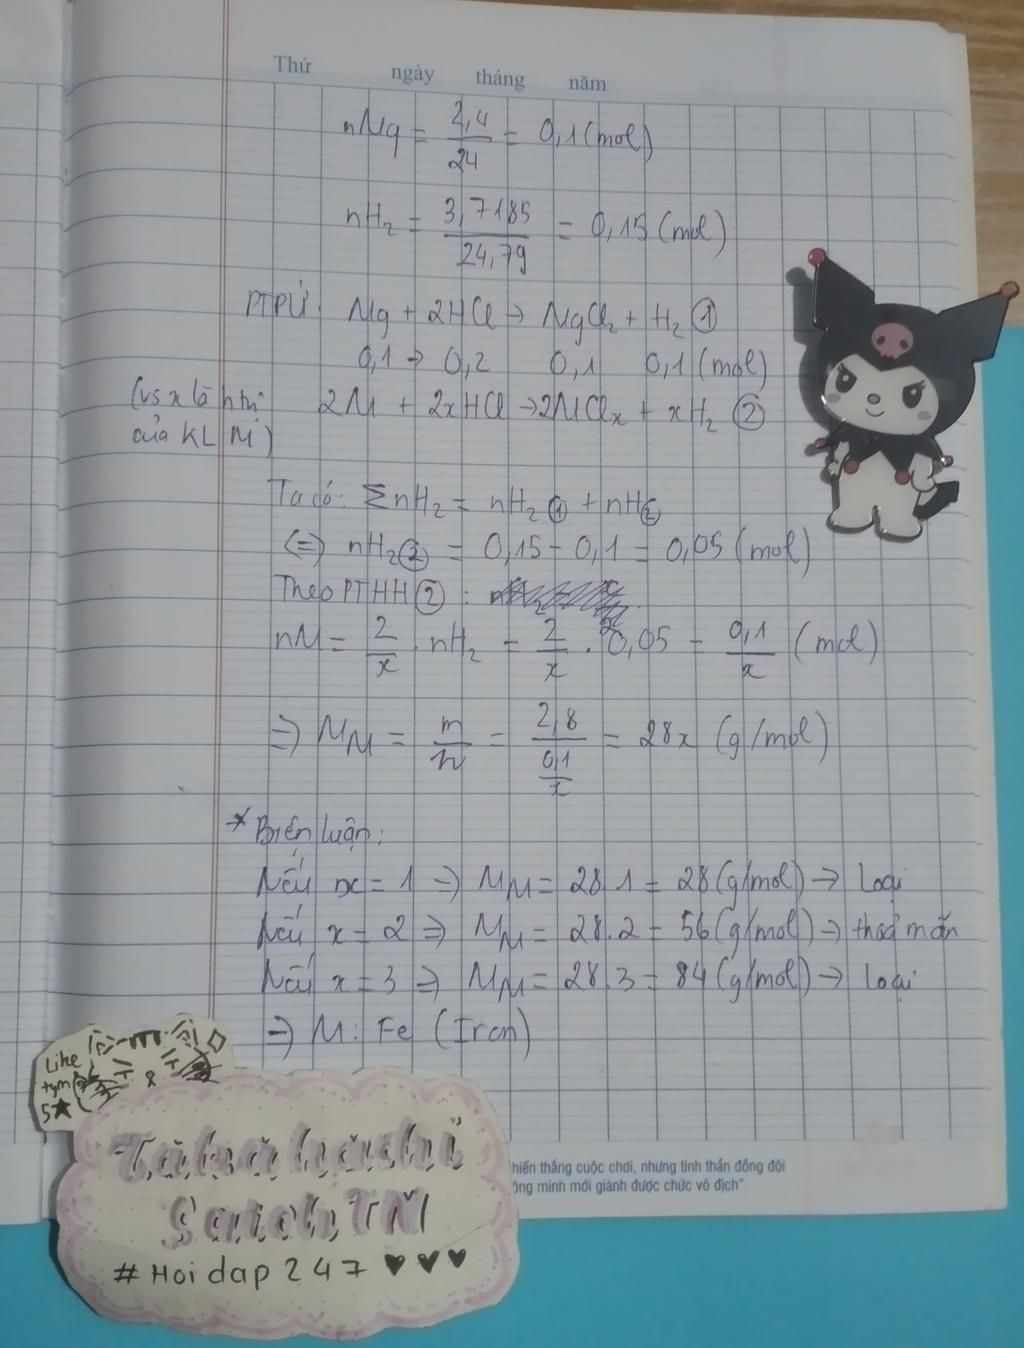 Thứ ngày tháng năm
nMg = 2,4/24 = 0,1 (mol)
nH₂ = 3,7185/24,79 = 0,15 (mol)
PTPỨ: Mg + 2HCl → MgCl₂ + H₂ ①
0,1 → 0,2 0,1 0,1 (mol)
(vs x là h trị của KL M)
2M + 2xHCl → 2MClₓ + xH₂ ②
Ta có: ΣnH₂ = nH₂① + nH②
(=) nH₂② = 0,15 - 0,1 = 0,05 (mol)
Theo PTHH②:
nM = 2/x . nH₂ = 2/x . 0,05 = 0,1/x (mol)
=> M_M = m/n = 2,8/(0,1/x) = 28x (g/mol)
* Biến luận:
Nếu x = 1 => M_M = 28.1 = 28 (g/mol) → Loại
Nếu x = 2 => M_M = 28.2 = 56 (g/mol) → thoả mãn
Nếu x = 3 => M_M = 28.3 = 84 (g/mol) → Loại
=> M: Fe (Iron)
Like
tym &
5★
SatohTM
#Hoidap247 ♥♥♥
hiến thắng cuộc chơi, nhưng tinh thần đồng đội
ông minh mới giành được chức vô địch"